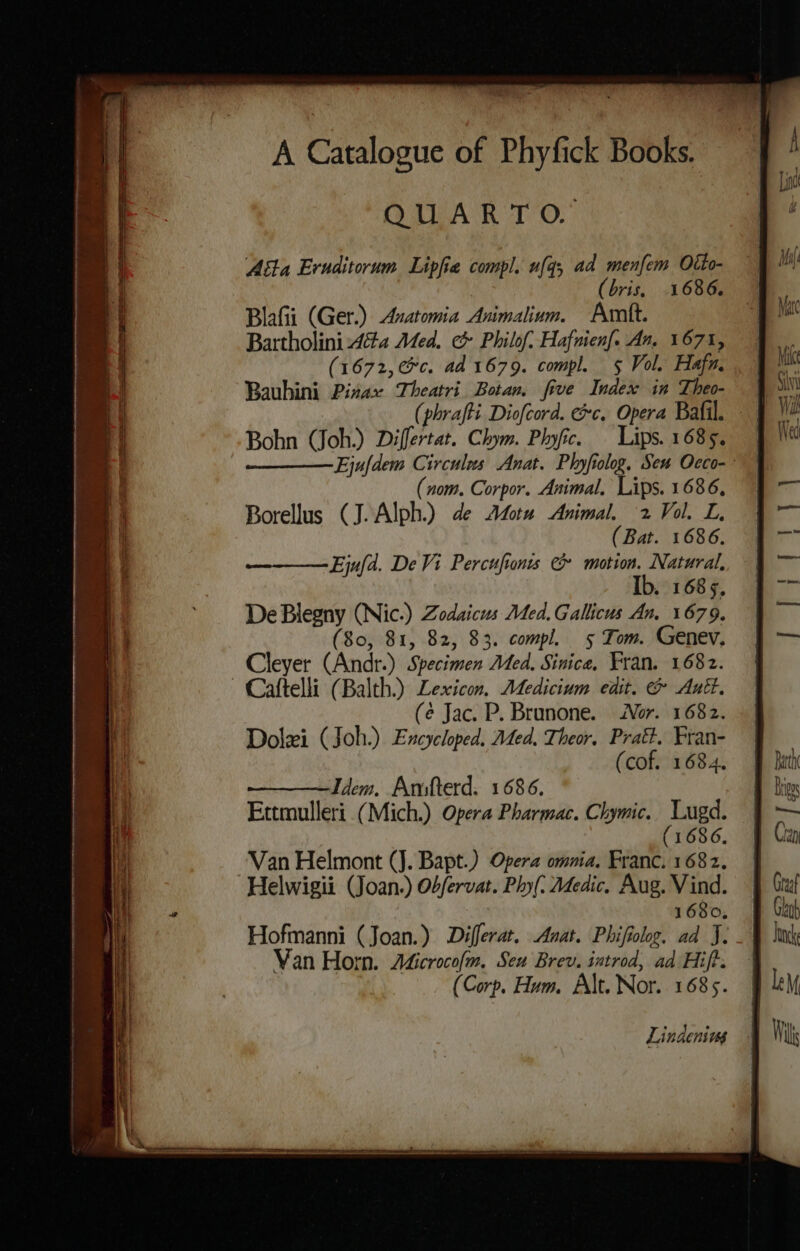 A Catalogue of Phyſick Books.
QUARTO.
Acta Eruditorum Lipſiæ compl. uſq; ad menſem Octo-
(bris, 1686.
Blaſii (Ger.) Anatomia Animalium. Amſt.
Bartholini Acta Med. & Philoſ. Hafnienſ. An. 1671,
(1672, &c. ad 1679. compl. 5 Vol. Hafn.
Bauhini Pinax Theatri Botan. ſive Index in Theo-
(phraſti Dioſcord. &c. Opera Baſil.
Bohn (Joh.) Diſſertat. Chym. Phyſic. Lips. 1685.
———Ejuſdem Circulus Anat. Phyſiolog. Seu Oeco-
(nom. Corpor. Animal. Lips. 1686.
Borellus (J. Alph.) de Motu Animal. 2 Vol. L.
(Bat. 1686.
———Ejuſd. De Vi Percuſionis & motion. Natural.
Ib. 1685.
De Blegny (Nic.) Zodaicus Med. Gallicus An. 1679.
(80, 81, 82, 83. compl. 5 Tom. Genev.
Cleyer (Andr.) Specimen Med. Sinicæ, Fran. 1682.
Caſtelli (Balth.) Lexicon. Medicium edit. & Auct.
(è Jac. P. Brunone. Nor. 1682.
Dolæi (Joh.) Encycloped. Med. Theor. Pract. Fran-
(cof. 1684.
———Idem. Amſterd. 1686.
Ettmulleri (Mich.) Opera Pharmac. Chymic. Lugd.
(1686.
Van Helmont (J. Bapt.) Opera omnia. Franc. 1682.
Helwigii (Joan.) Obſervat. Phyſ. Medic. Aug. Vind.
1680.
Hofmanni (Joan.) Differat. Anat. Phiſiolog. ad J.
Van Horn. Microcoſm. Seu Brev. introd, ad Hiſt.
(Corp. Hum. Alt. Nor. 1685.
Lindenius